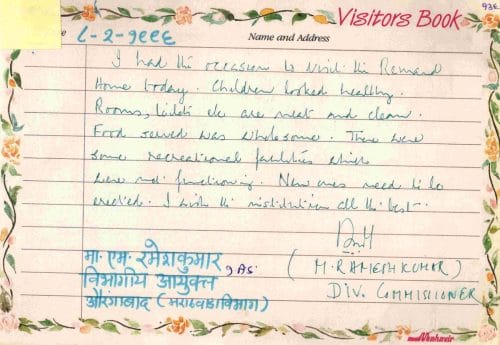 Visitors Book
93६
e ८-२-१९९६ Name and Address
I had the occasion to visit the Remand
Home today. Children looked healthy.
Rooms, toilets etc are neat and clean.
Food served was wholesome. There were
some recreational facilities which
were not functioning. New ones need to be
erected. I wish the institution all the best.
मा. एम. रमेशकुमार IAS.
विभागीय आयुक्त
औरंगाबाद (मराठवाडा विभाग)
(M. RAMESH KUMAR)
DIV. COMMISSIONER
Mahavir